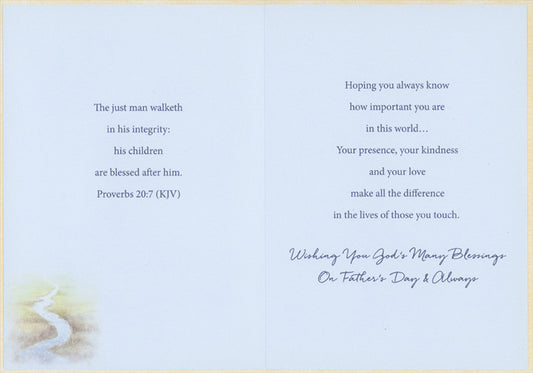 The just man walketh
in his integrity:
his children
are blessed after him.
Proverbs 20:7 (KJV)
Hoping you always know
how important you are
in this world…
Your presence, your kindness
and your love
make all the difference
in the lives of those you touch.
Wishing You God's Many Blessings
On Father's Day & Always